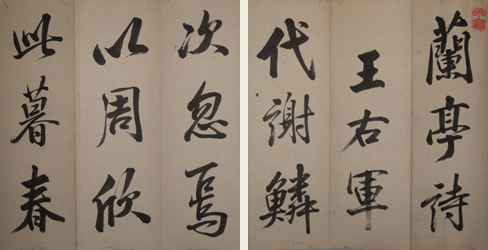 蘭亭詩
王右軍
代謝鱗
次忽焉
以周欣
此暮春